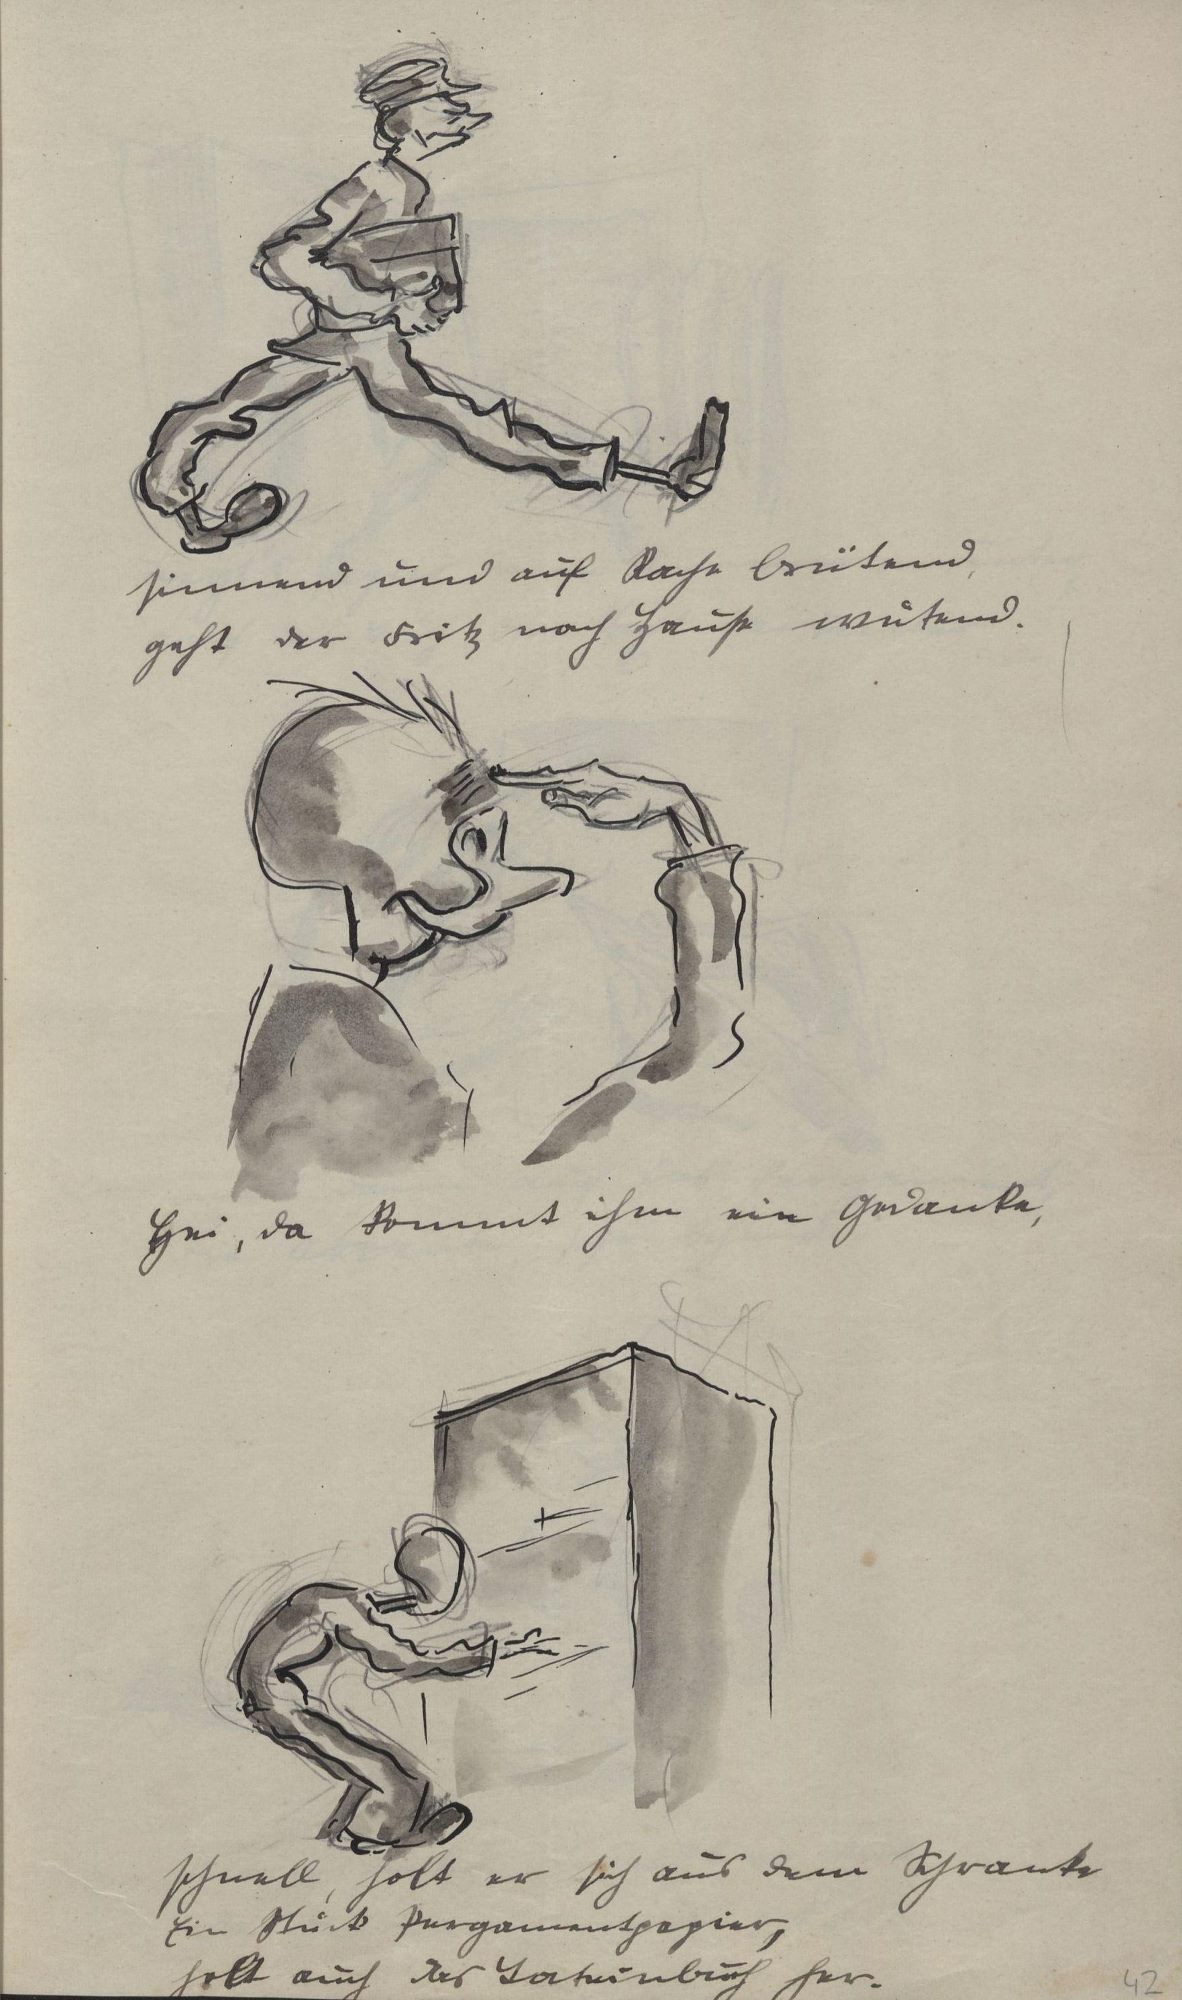 sinnend und auf Rache brütend,
geht der Fritz nach Hause wütend.
Hei, da kommt ihm ein Gedanke,
schnell, holt er sich aus dem Schranke
Ein Stück Pergamentpapier,
holt auch das Lateinbuch her.
42